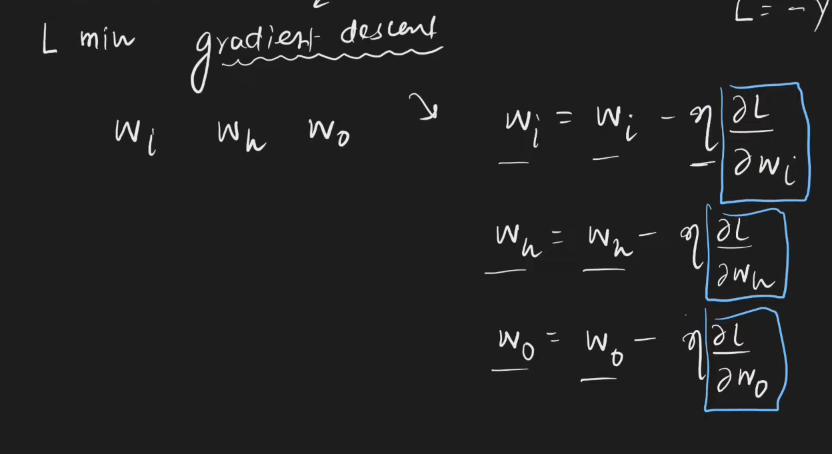 L = - y
L min gradient descent
w_i w_h w_o
w_i = w_i - η ∂L/∂w_i
w_h = w_h - η ∂L/∂w_h
w_o = w_o - η ∂L/∂w_o